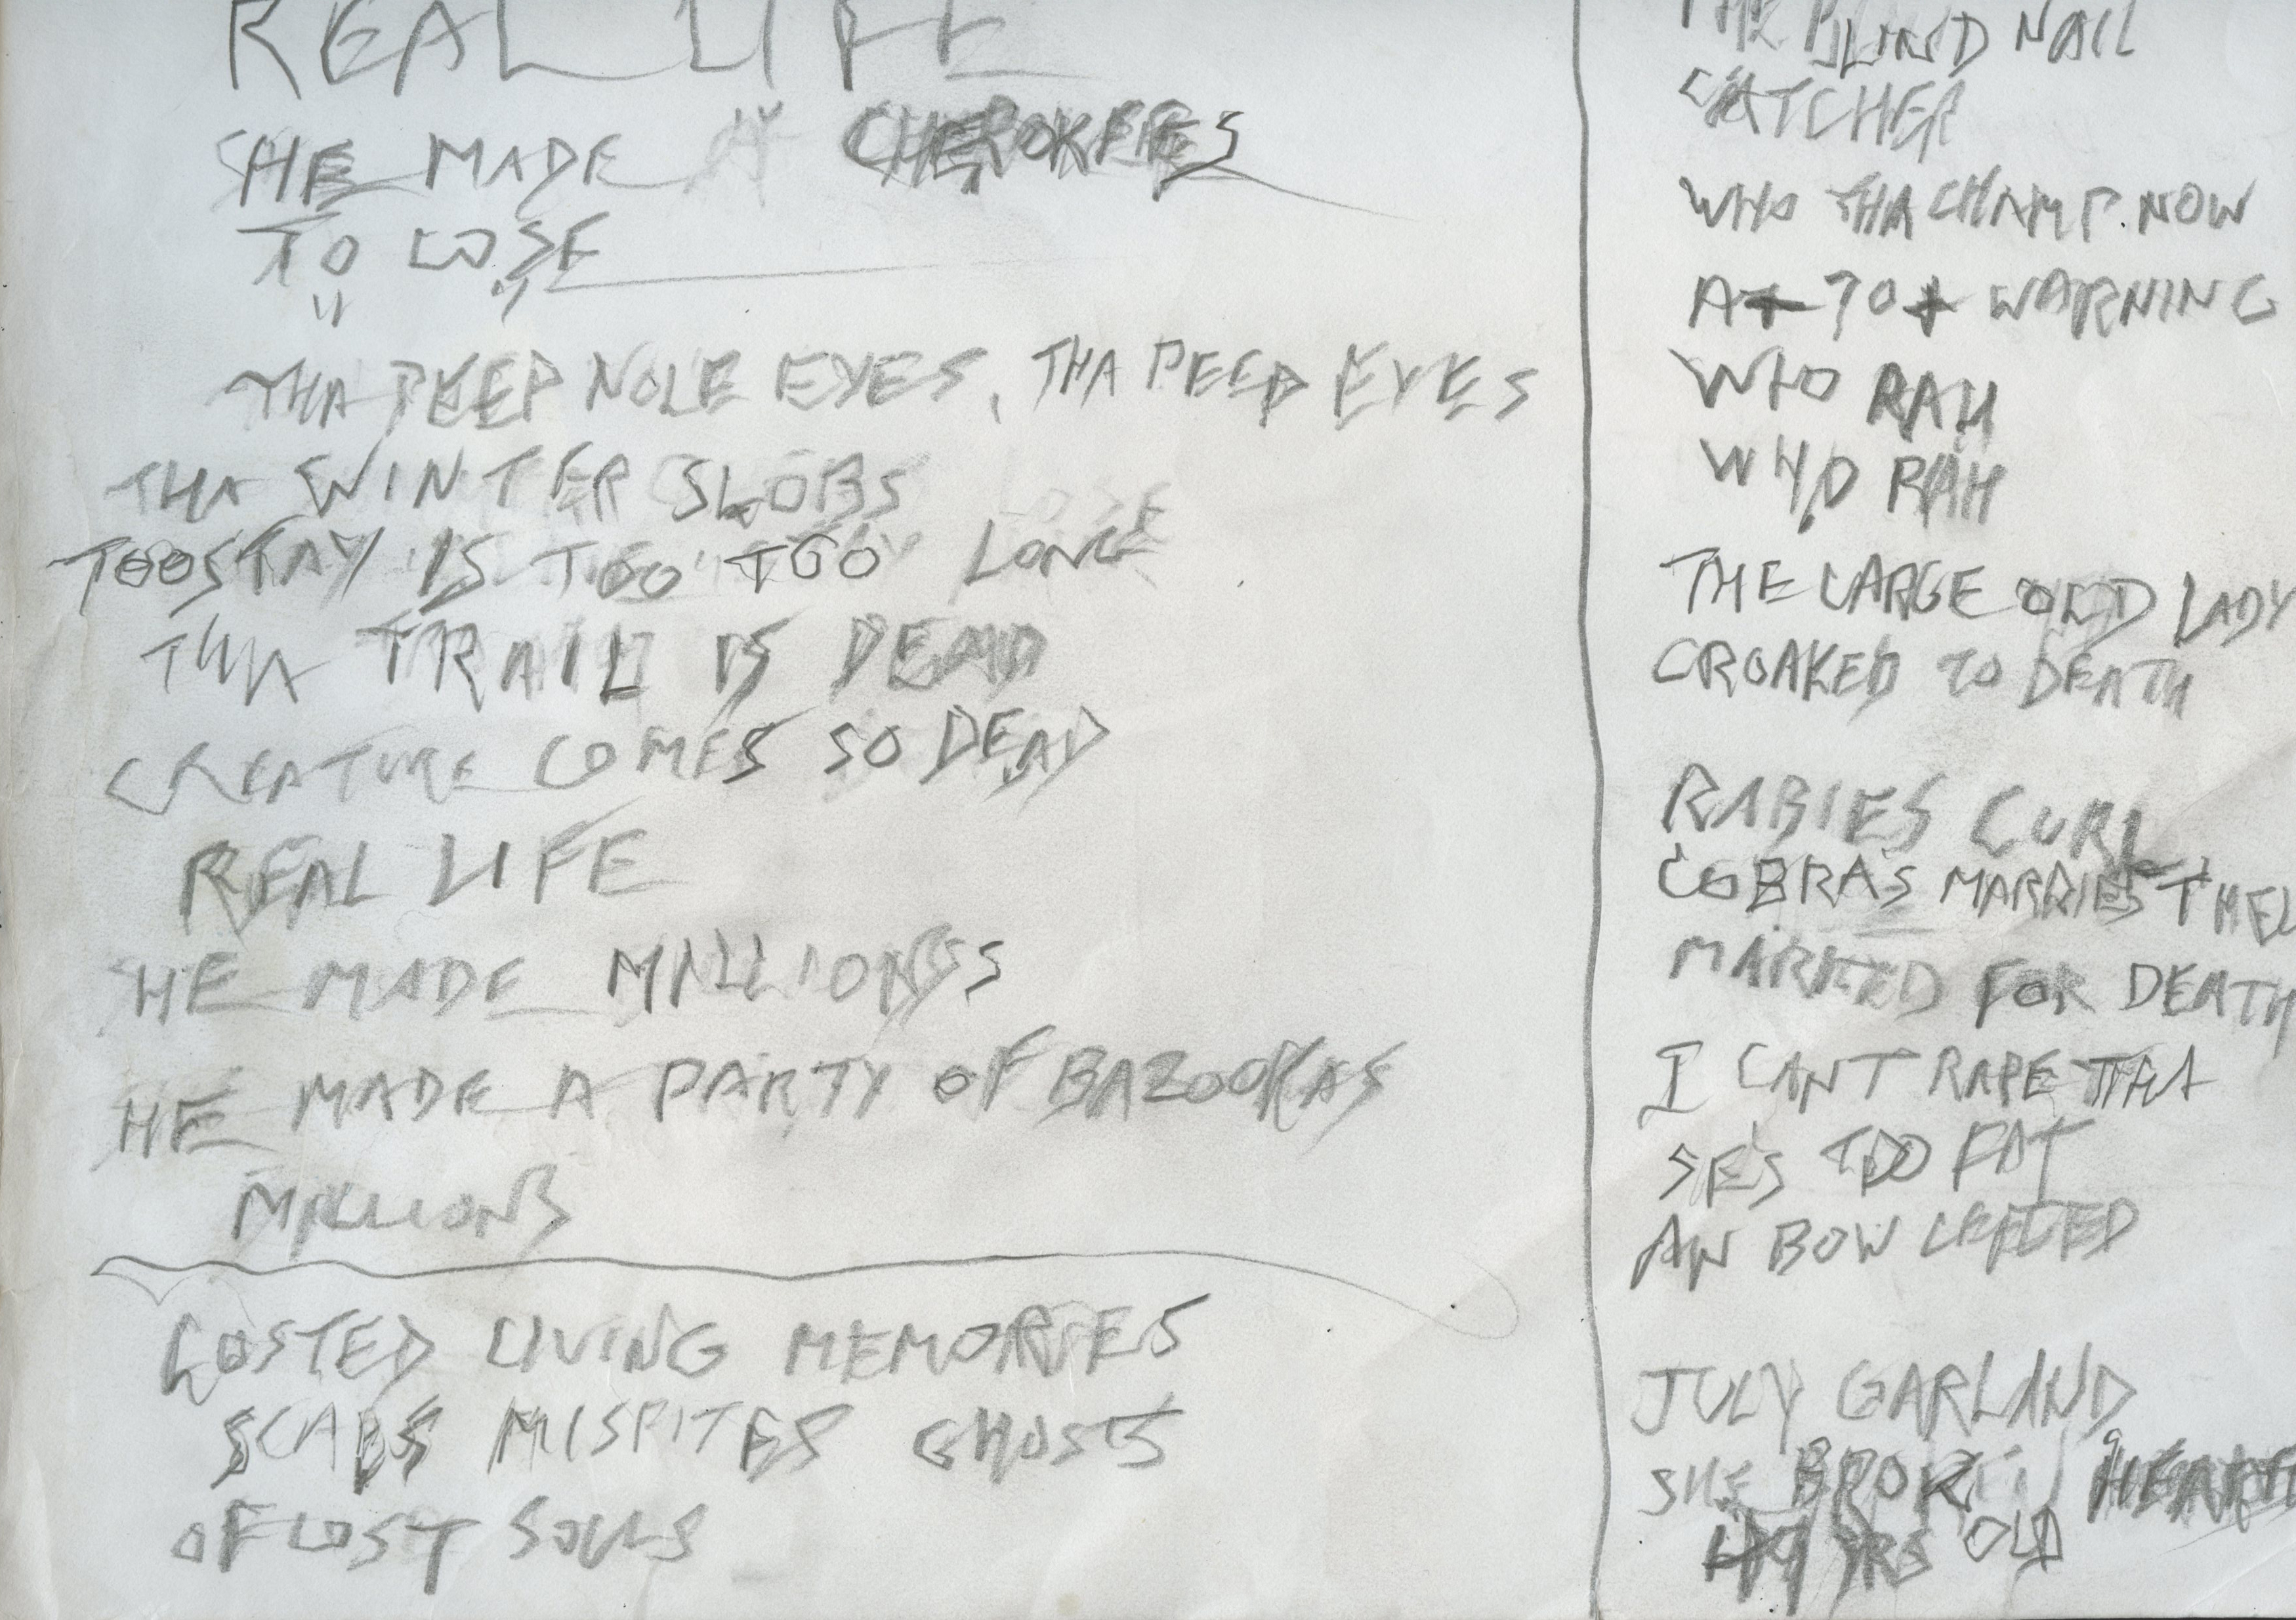 REAL LIFE
HE MADE CHEROKEES
TO LOSE
THA PEEP NOLE EYES, THA PEEP EYES
THA WINTER SLOBS
TOOSTAY IS TOO TOO LONG
THA TRAIL IS DEAD
CREATURE COMES SO DEAD
REAL LIFE
HE MADE MILLIONS
HE MADE A PARTY OF BAZOOKAS
MILLIONS
LOSTED LIVING MEMORIES
SCABS MISPITES GHOSTS
OF LOST SOULS
THE BLIND NAIL
CATCHER
WHO THA CHAMP NOW
AT 70 WARNING
WHO RAH
WHO RAH
THE LARGE OLD LADY
CROAKED TO DEATH
RABIES CURL
COBRAS MARRIES
MARKED FOR DEATH
I CANT RAPE THA
SE'S TOO FAT
AN BOW LEGED
JULY GARLAND
SHE BROKE HEART
YRS OLD